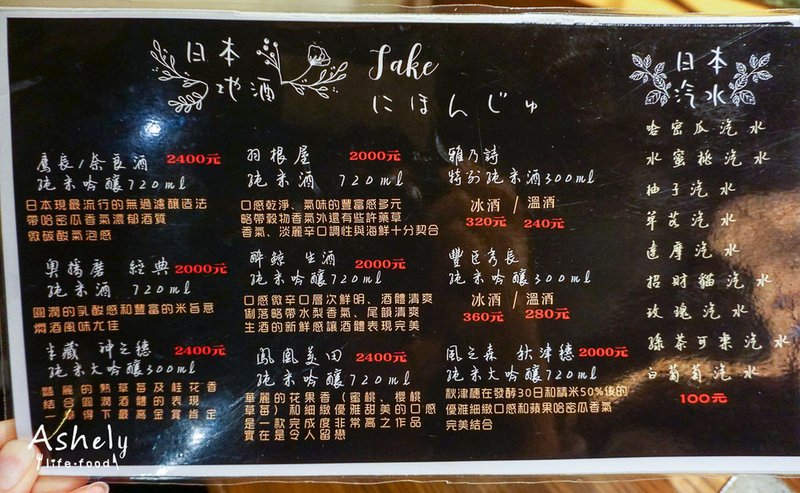 日本
地酒
Sake
にほんじゅ
鷹長/奈良酒 2400元
純米吟釀720ml
日本現最流行的無過濾釀造法
帶哈密瓜香氣濃郁酒質
微碳酸氣泡感
奧播磨 經典 2000元
純米酒 720ml
圓潤的乳酸感和豐富的米旨意
燗酒風味尤佳
生藏 神之穗 2400元
純米大吟釀300ml
豔麗的熟草莓及桂花香
結合圓潤酒體的表現
一舉得下最高金賞肯定
羽根屋 2000元
純米酒 720ml
口感乾淨、氣味的豐富感多元
略帶穀物香氣外還有些許藥草
香氣、淡麗辛口調性與海鮮十分契合
醉鯨 生酒 2000元
純米吟釀720ml
口感微辛口層次鮮明、酒體清爽
俐落略帶水梨香氣、尾韻清爽
生酒的新鮮感讓酒體表現完美
鳳凰美田 2400元
純米吟釀720ml
華麗的花果香（蜜桃、櫻桃
草莓）和細緻優雅甜美的口感
是一款完成度非常高之作品
實在是令人留戀
雅乃詩
特別純米酒300ml
冰酒 / 溫酒
320元 240元
豐臣秀長
純米吟釀300ml
冰酒 / 溫酒
360元 280元
風之森 秋津穗 2000元
純米大吟釀720ml
秋津穗在發酵30日和精米50%後的
優雅細緻口感和蘋果哈密瓜香氣
完美結合
日本
汽水
哈密瓜汽水
水蜜桃汽水
柚子汽水
草莓汽水
達摩汽水
招財貓汽水
玫瑰汽水
綠茶可樂汽水
白葡萄汽水
100元
Ashely
life·food